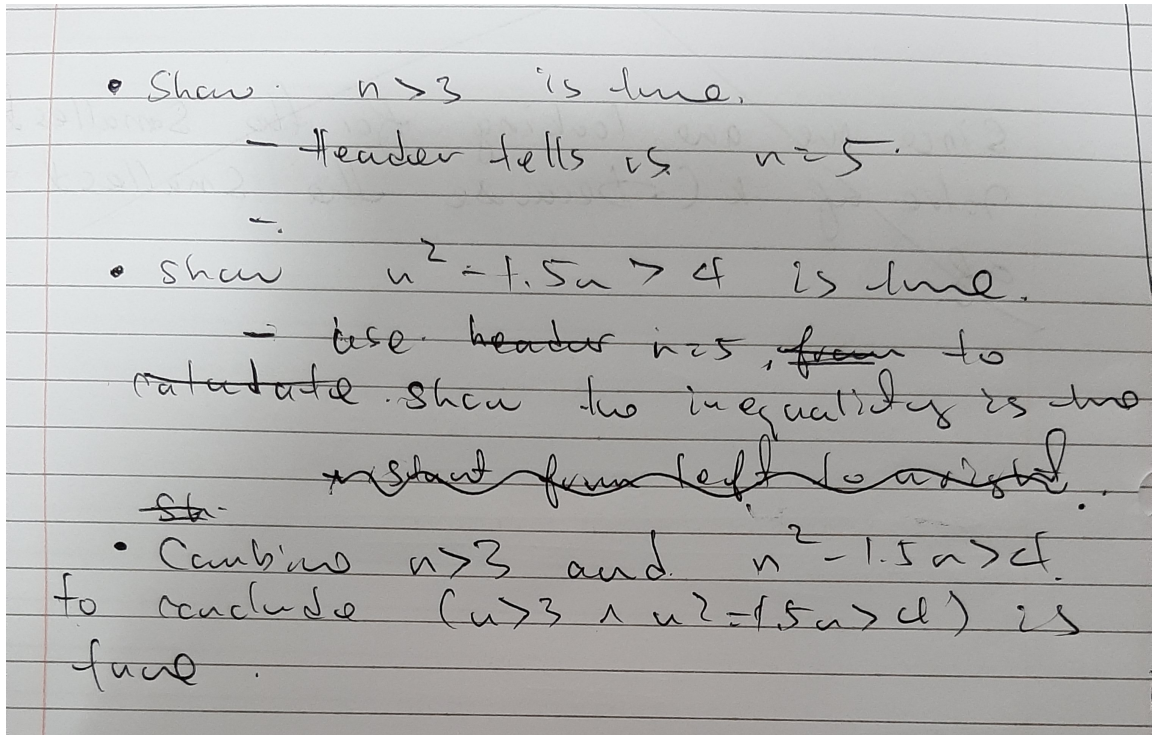 • Show n>3 is true.
- Header tells us n=5.
-.
• show n² - 1.5n > 4 is true.
- Use header n=5, from to
calculate show the inequality is true
start from left to right.
Sh
• Combine n>3 and n² - 1.5n>4.
to conclude (n>3 ∧ n² - 1.5n > 4) is
true.